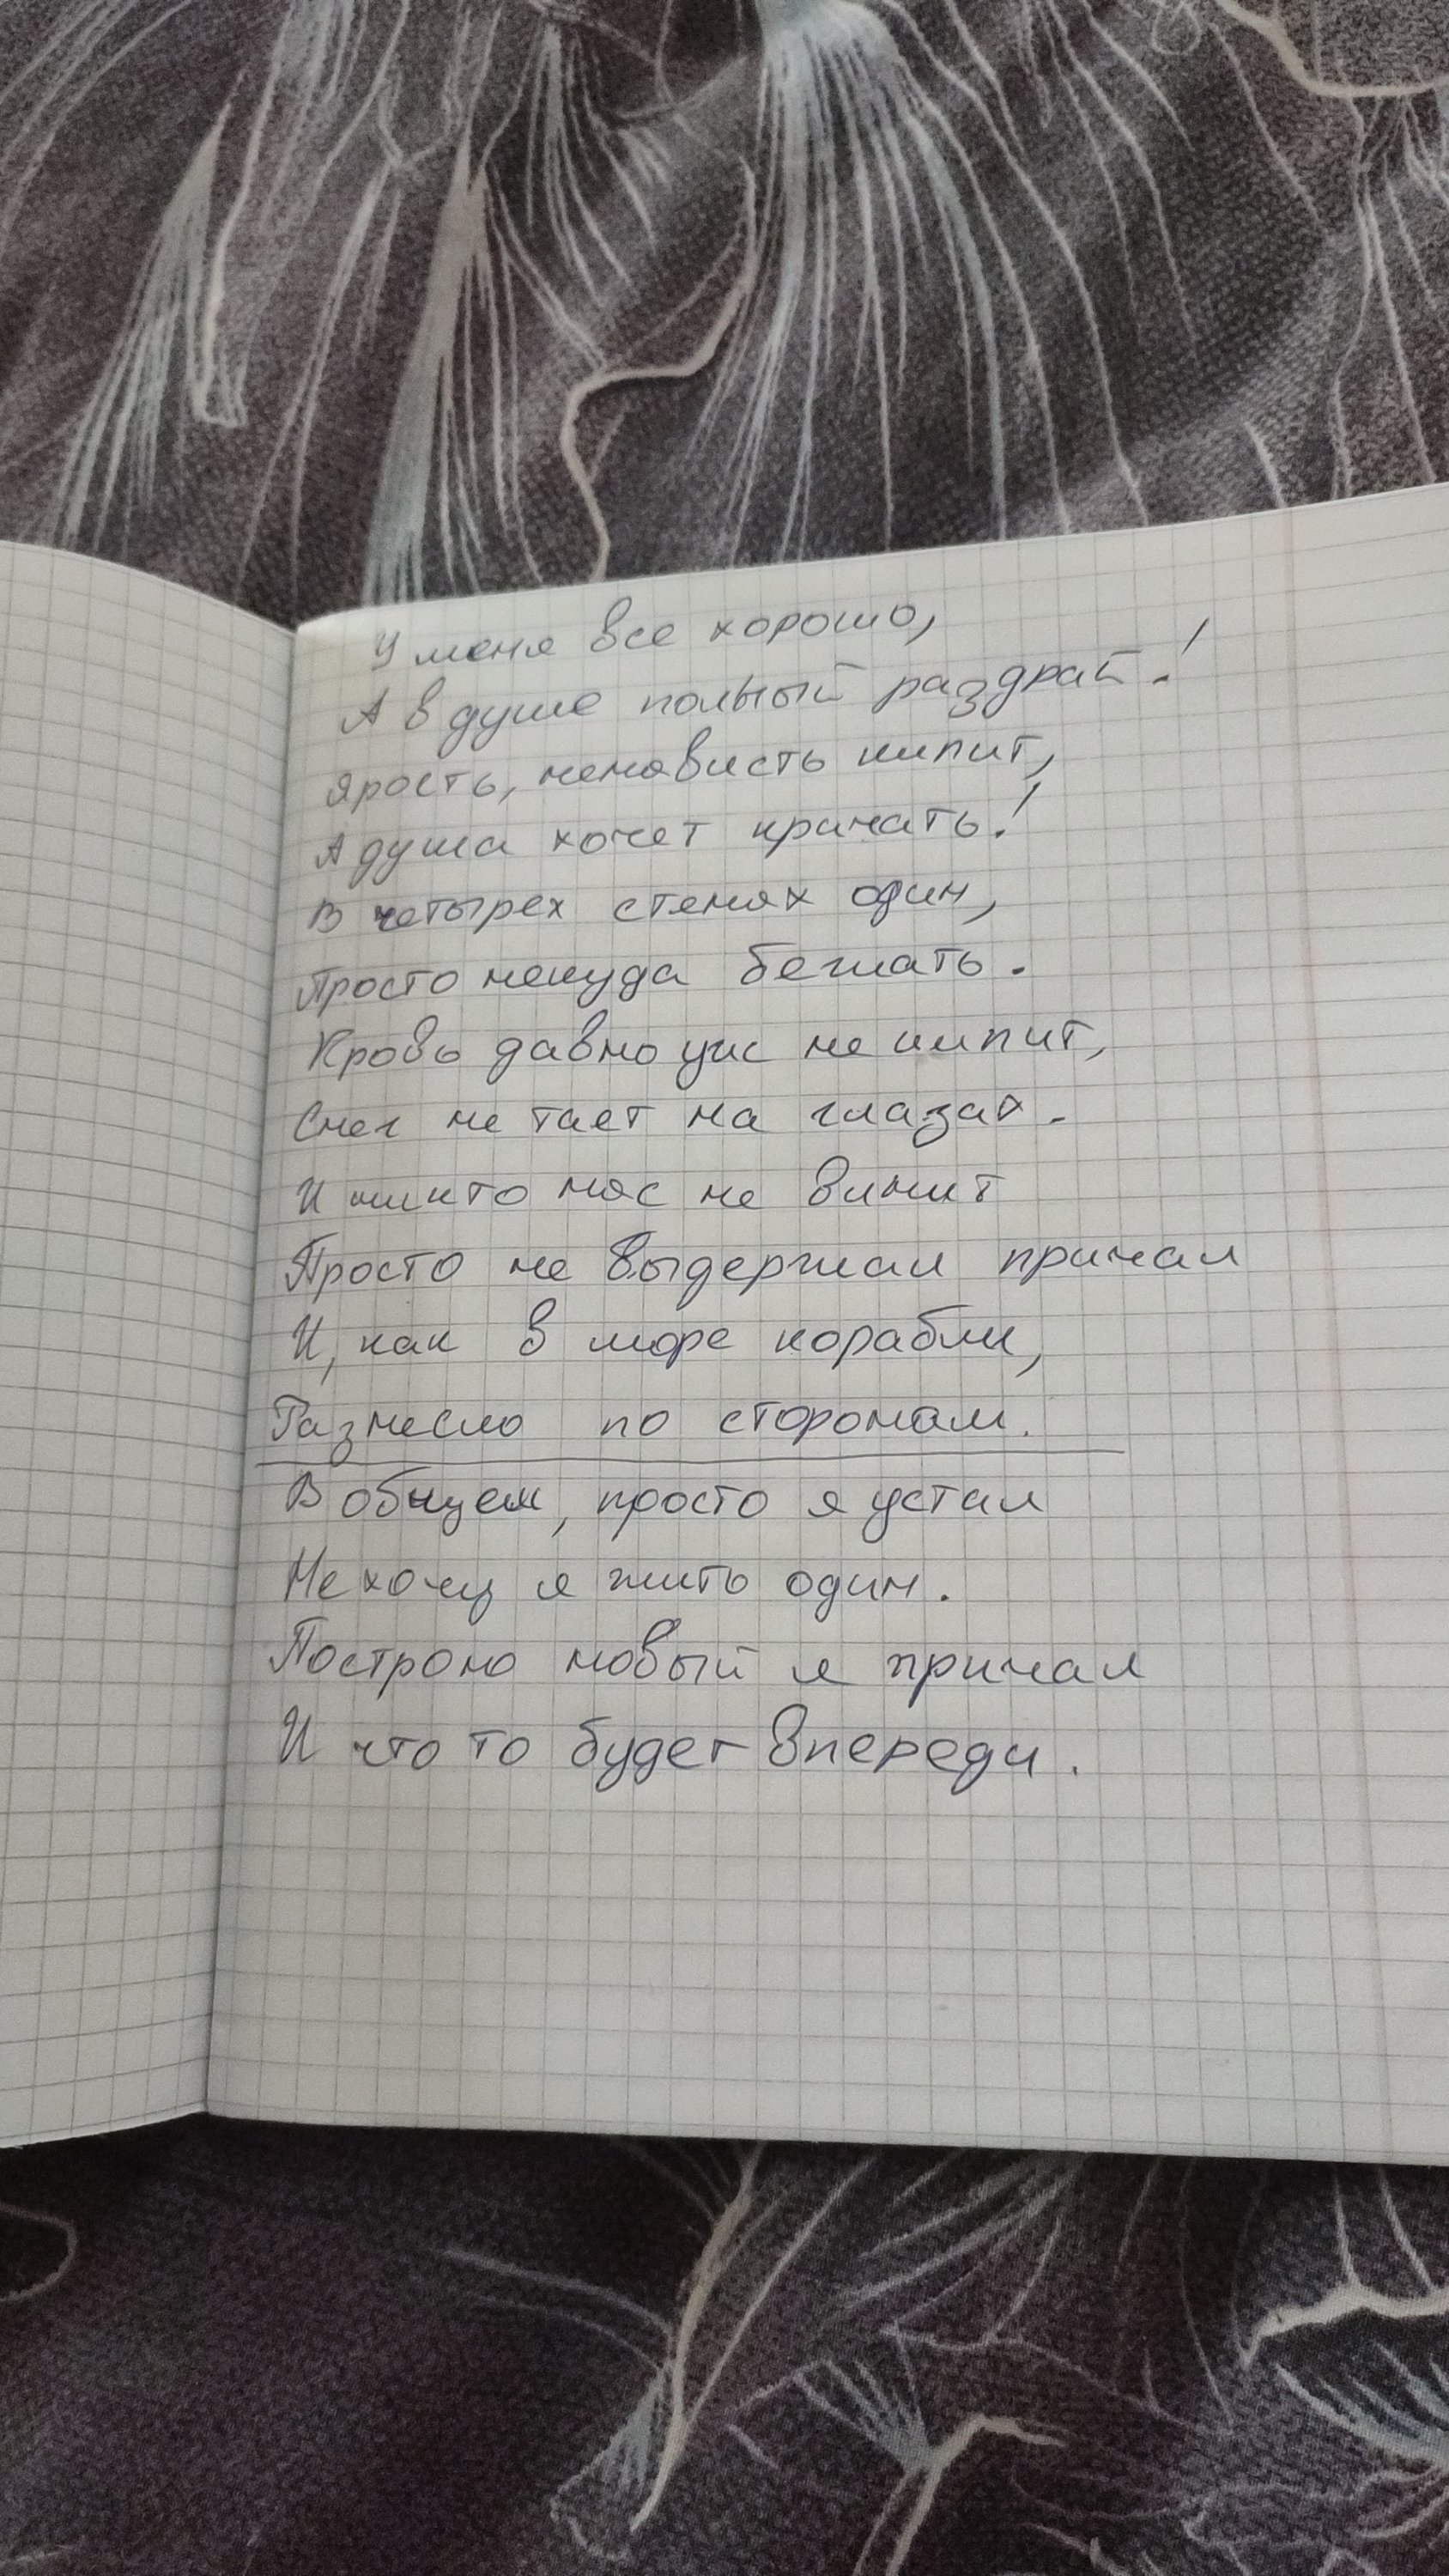 У меня все хорошо,
А в душе полный раздрай!
Ярость, ненависть кипит,
А душа хочет кричать!
В четырех стенах один,
Просто некуда бежать.
Кровь давно уж не кипит,
Снег не тает на глазах.
И никто нас не винит
Просто не выдержал причал
И, как в море корабли,
Разнесло по сторонам.
В общем, просто я устал
Не хочу я жить один.
Построю новый я причал
И что то будет впереди.